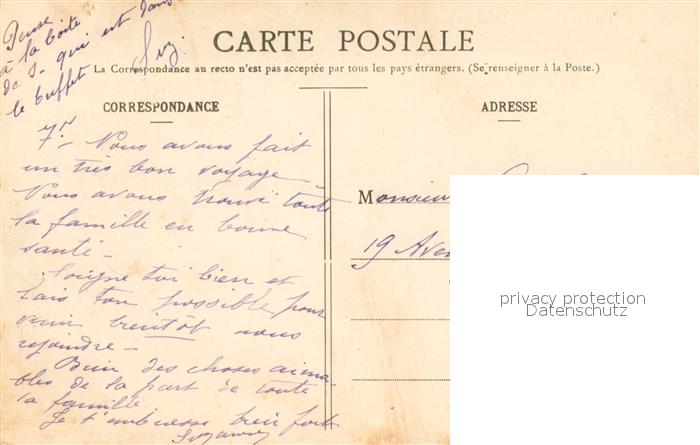 Pense
à la boîte
de S- qui est dans
le buffet
CARTE POSTALE
La Correspondance au recto n'est pas acceptée par tous les pays étrangers. (Se renseigner à la Poste.)
CORRESPONDANCE
Nous avons fait
un très bon voyage -
Nous avons trouvé toute
la famille en bonne
santé -
Soigne toi bien et
fais ton possible pour
venir bientôt nous
rejoindre -
Bien des choses aima-
bles de la part de toute
la famille
Je t'embrasse bien fort
Suzanne
ADRESSE
Monsieur
19 Aven
privacy protection
Datenschutz